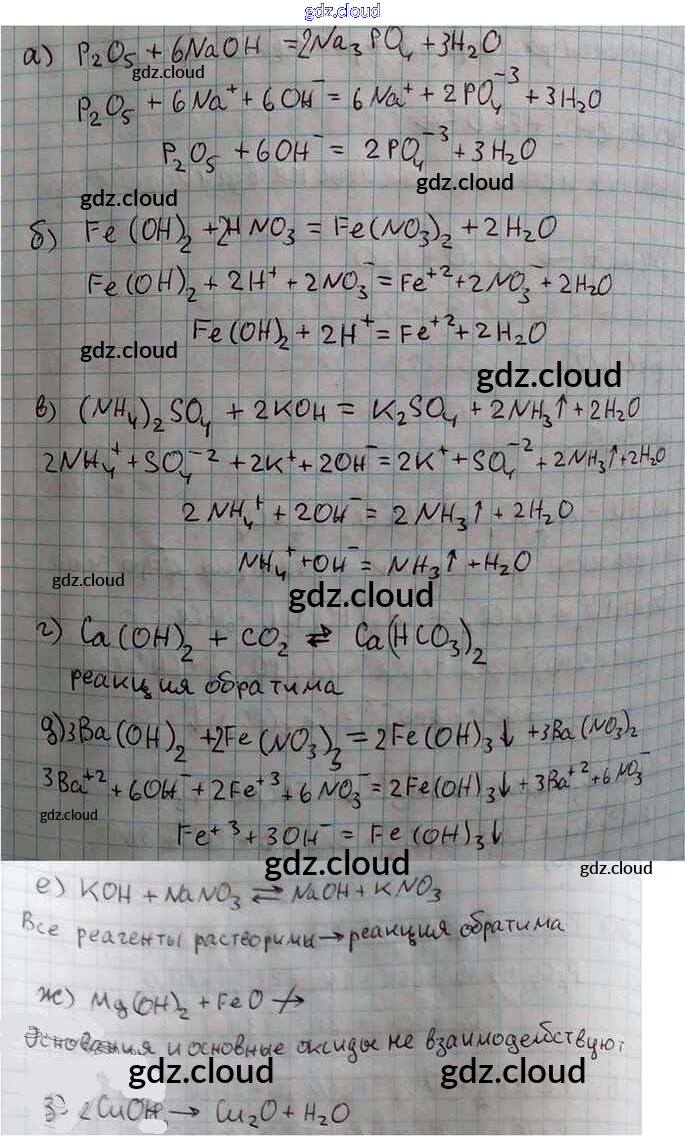 gdz.cloud
а) P₂O₅ + 6NaOH = 2Na₃PO₄ + 3H₂O
gdz.cloud
P₂O₅ + 6Na⁺ + 6OH⁻ = 6Na⁺ + 2PO₄⁻³ + 3H₂O
P₂O₅ + 6OH⁻ = 2PO₄⁻³ + 3H₂O
gdz.cloud gdz.cloud
б) Fe(OH)₂ + 2HNO₃ = Fe(NO₃)₂ + 2H₂O
Fe(OH)₂ + 2H⁺ + 2NO₃⁻ = Fe⁺² + 2NO₃⁻ + 2H₂O
Fe(OH)₂ + 2H⁺ = Fe⁺² + 2H₂O
gdz.cloud gdz.cloud
в) (NH₄)₂SO₄ + 2KOH = K₂SO₄ + 2NH₃↑ + 2H₂O
2NH₄⁺ + SO₄⁻² + 2K⁺ + 2OH⁻ = 2K⁺ + SO₄⁻² + 2NH₃↑ + 2H₂O
2NH₄⁺ + 2OH⁻ = 2NH₃↑ + 2H₂O
NH₄⁺ + OH⁻ = NH₃↑ + H₂O
gdz.cloud gdz.cloud
г) Ca(OH)₂ + CO₂ ⇌ Ca(HCO₃)₂
реакция обратима
д) 3Ba(OH)₂ + 2Fe(NO₃)₃ = 2Fe(OH)₃↓ + 3Ba(NO₃)₂
3Ba⁺² + 6OH⁻ + 2Fe⁺³ + 6NO₃⁻ = 2Fe(OH)₃↓ + 3Ba⁺² + 6NO₃⁻
gdz.cloud
Fe⁺³ + 3OH⁻ = Fe(OH)₃↓
gdz.cloud gdz.cloud
е) KOH + NaNO₃ ⇌ NaOH + KNO₃
Все реагенты растворимы → реакция обратима
ж) Mg(OH)₂ + FeO ↛
Основания и основные оксиды не взаимодействую
gdz.cloud gdz.cloud
з) 2CuOH → Cu₂O + H₂O
gdz.cloud